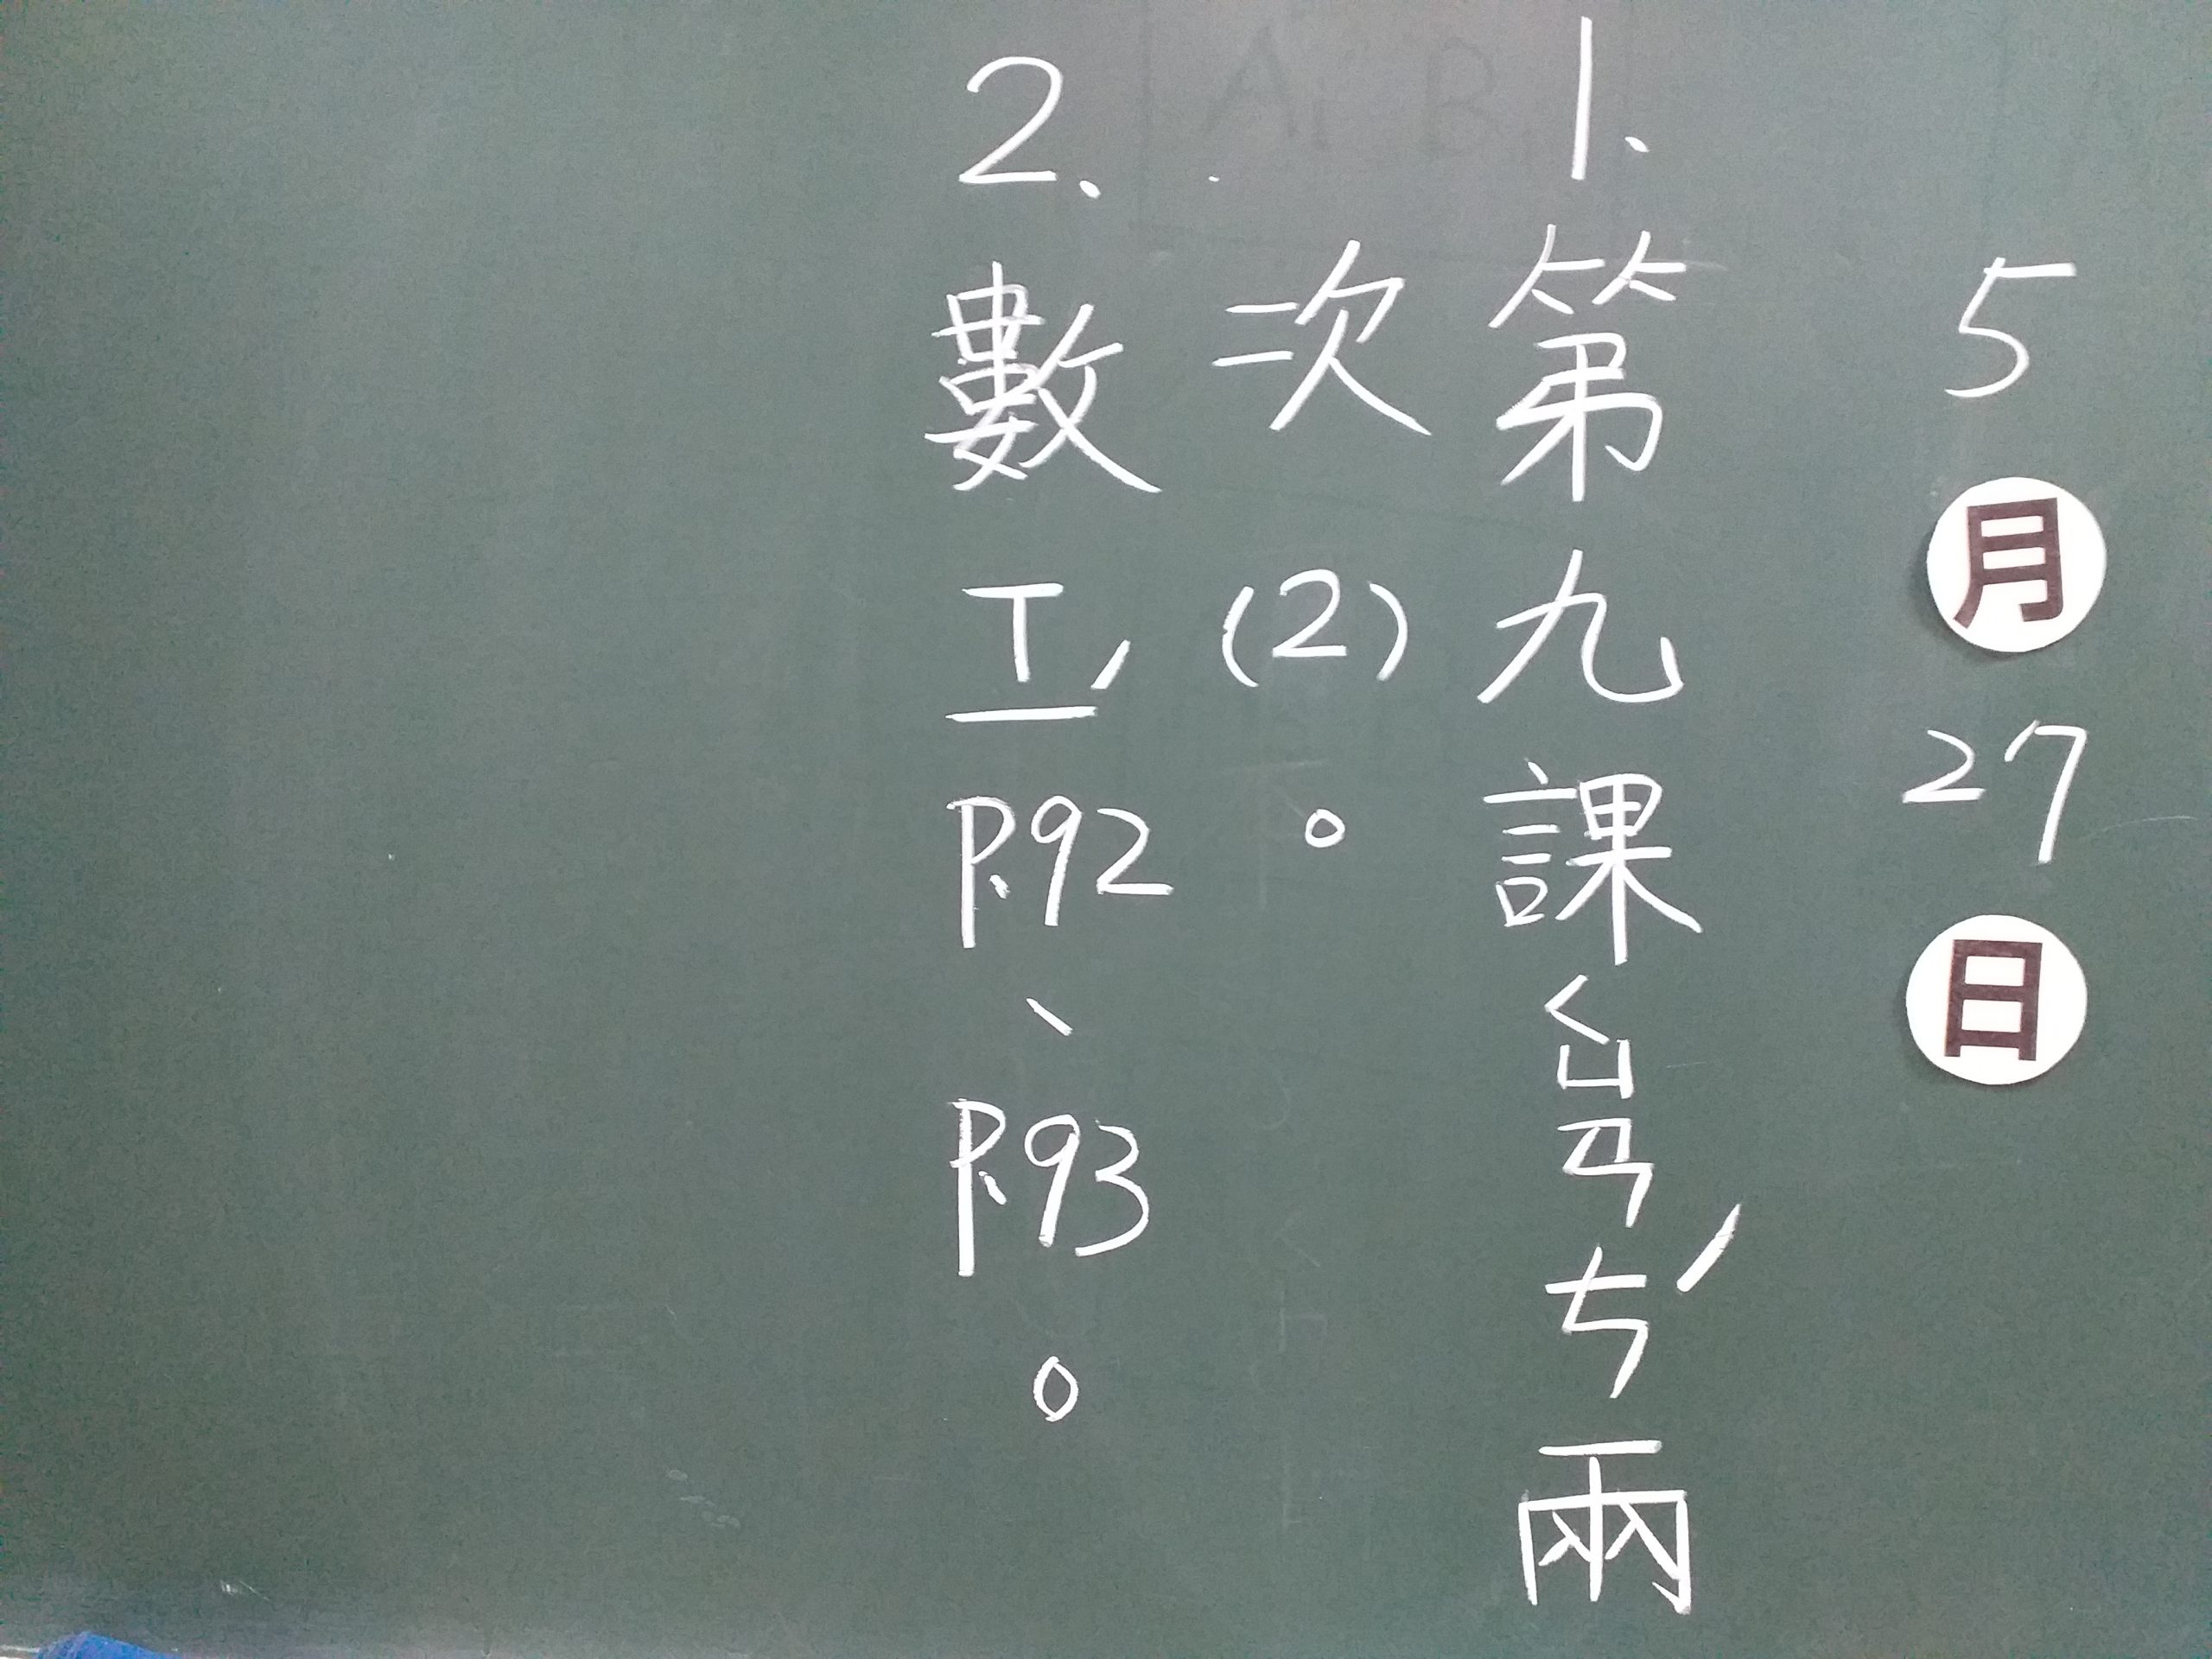 5月27日
1、第九課ㄑㄩㄢㄘˊ兩
次(2)。
2、數ㄒㄧˊP.92、P.93。